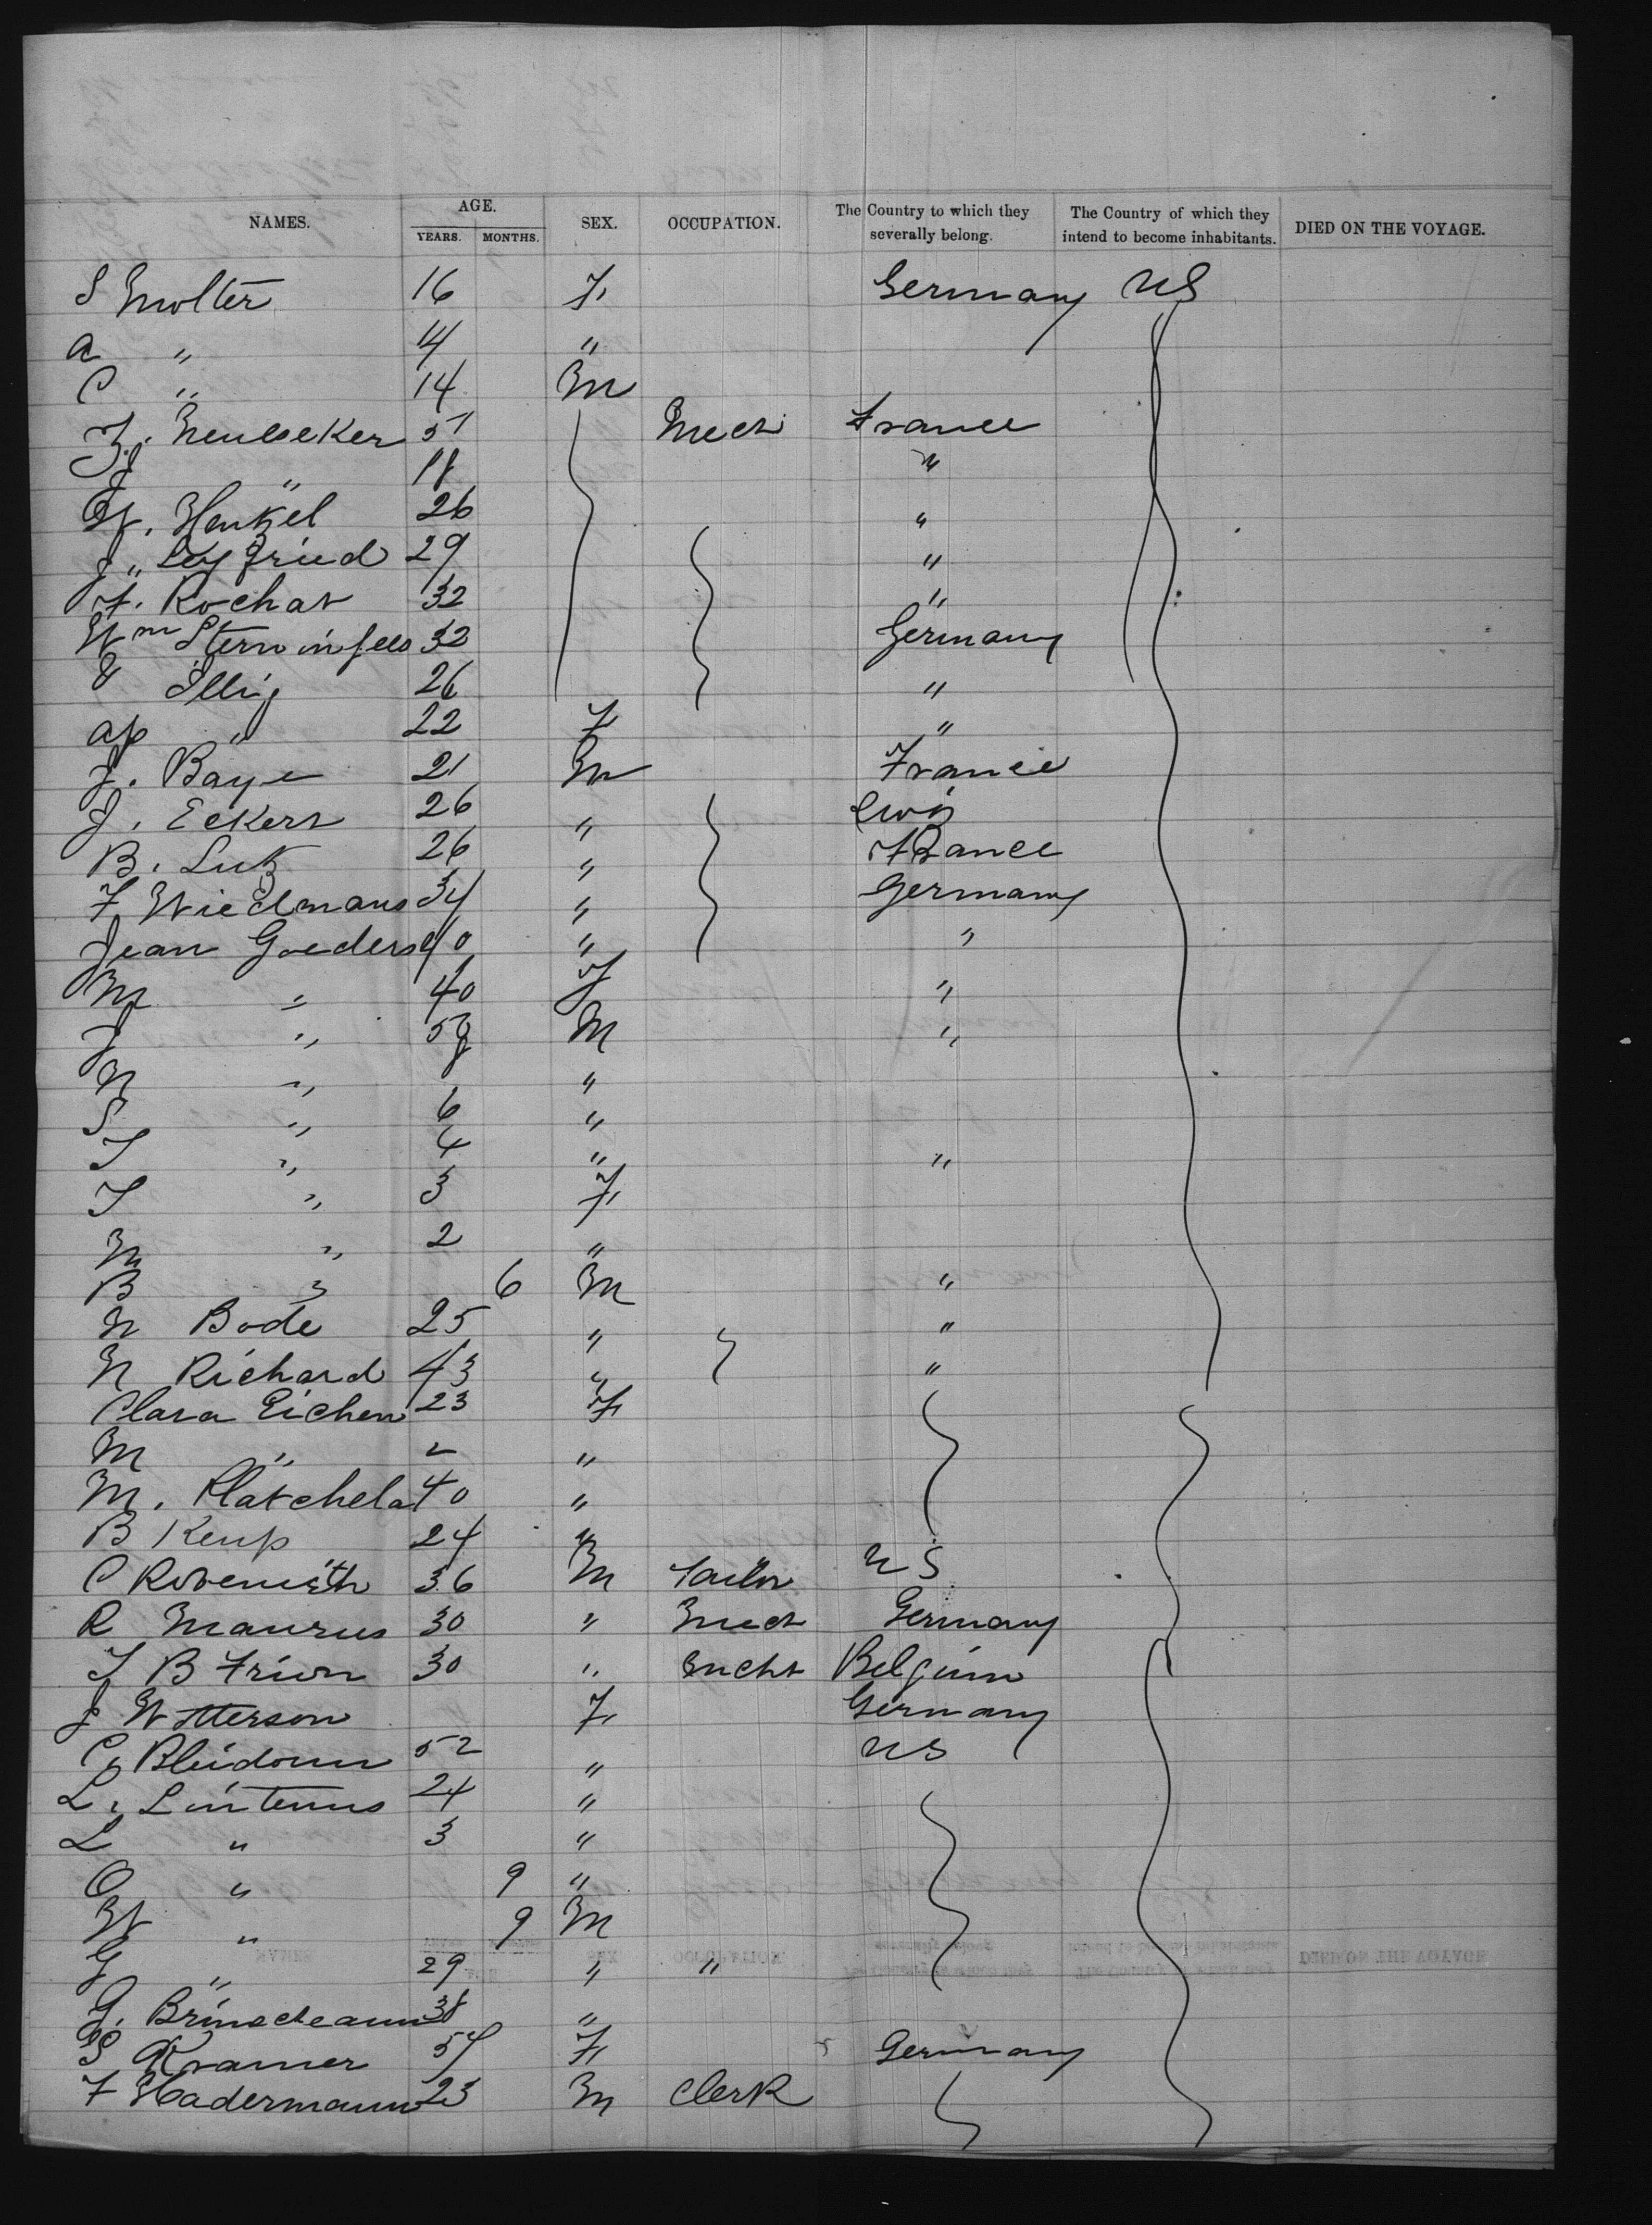 NAMES. AGE. YEARS. MONTHS. SEX. OCCUPATION. The Country to which they severally belong. The Country of which they intend to become inhabitants. DIED ON THE VOYAGE.
S Molter 16 F Germany US
A " 14 "
C " 14 M
51 Mech France
J " 18 "
W. Henkel 26 "
J. Seyfried 29 "
F. Rochat 32 "
Wm Sterninfels 32 Germany
E Illig 26 "
Ap " 22 F "
J. Baye 21 M France
J. Eckert 26 " Swiz
B. Lutz 26 " France
F Wiedmans 34 " Germany
Jean Goeders 40 " "
M " 40 F "
J " M "
N " 8 "
S " 6 "
J " 4 " "
J " 3 F
M " 2 "
B " 6 M "
N Bode 25 " "
N Richard 43 " "
Clara Eichen 23 F
M " 2 "
M. 40 "
B Kemp 24 "
C 36 M Tailor US
R Maurus 30 " Mech Germany
J B Frion 30 " Mcht Belgium
J Wotterson F Germany
C. Bleidorn 52 " US
L. Lintenus 24 "
L " 3 "
O " 9 "
W " 9 M
G " 29 " "
G. 38 "
S Kramer 54 F Germany
F Hadermann 23 M Clerk